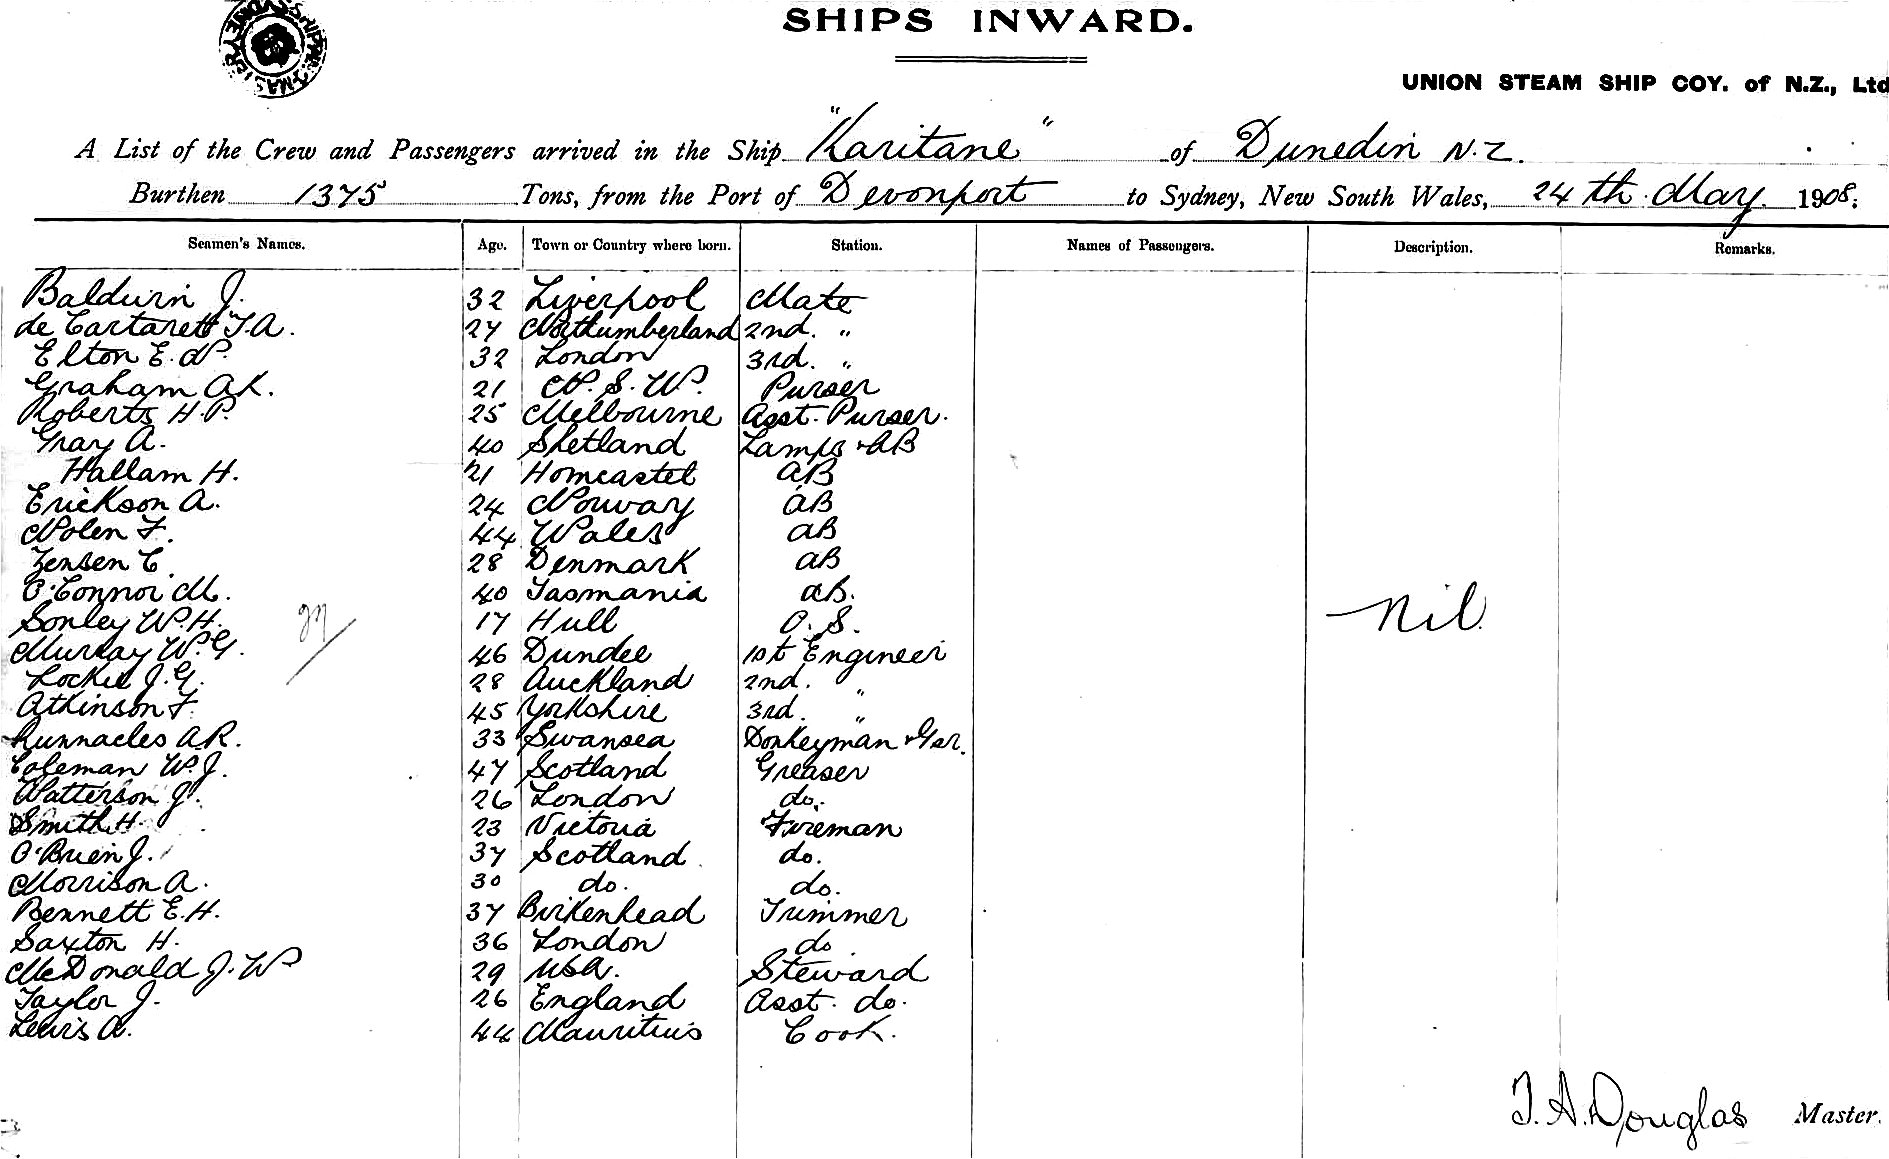 SHIPS INWARD.
UNION STEAM SHIP COY. of N.Z., Ltd
A List of the Crew and Passengers arrived in the Ship "Karitane" of Dunedin N.Z.
Burthen 1375 Tons, from the Port of Devonport to Sydney, New South Wales, 24th May 1908.
Seamen's Names. Age. Town or Country where born. Station. Names of Passengers. Description. Remarks.
Baldwin J. 32 Liverpool Mate
de Cartarett T.A. 27 Northumberland 2nd. "
Elton E. N. 32 London 3rd. "
Graham A.K. 21 N. S. W. Purser
Roberts H.P. 25 Melbourne Asst. Purser.
Gray A. 40 Shetland Lamps & AB
Hallam H. 21 Horncastel AB
Erickson A. 24 Norway AB
Nolen F. 44 Wales AB
Jensen C. 28 Denmark AB
O'Connor M. 40 Tasmania AB.
Sonley W.H. 17 Hull O. S.
Nil.
Murray W.G. 46 Dundee 1st Engineer
Lockie J.G. 28 Auckland 2nd. "
Atkinson F. 45 Yorkshire 3rd. "
Runnacles A.R. 33 Swansea Donkeyman & Gsr.
Coleman W.J. 47 Scotland Greaser
Watterson J. 26 London do.
Smith H. 23 Victoria Fireman
O'Brien J. 37 Scotland do.
Morrison A. 30 do. do.
Bennett E.H. 37 Birkenhead Trimmer
Saxton H. 36 London do
McDonald J.W 29 USA. Steward
Taylor J. 26 England Asst. do.
Lewis A. 44 Mauritius Cook.
T.A. Douglas Master.